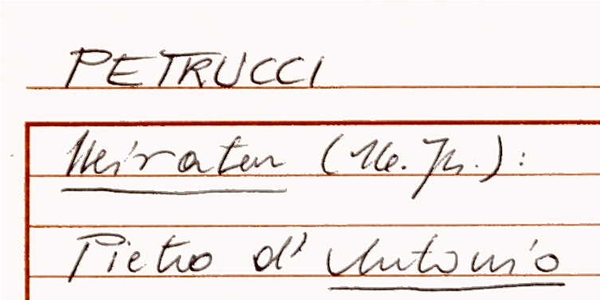 PETRUCCI
Heiraten (16. Jh.):
Pietro d' Antonio